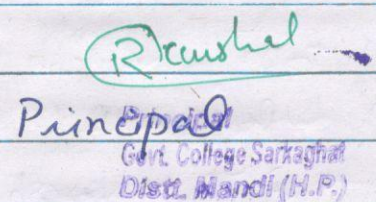 R Kaushal
Principal
Principal
Govt. College Sarkaghat
Distt. Mandi (H.P.)